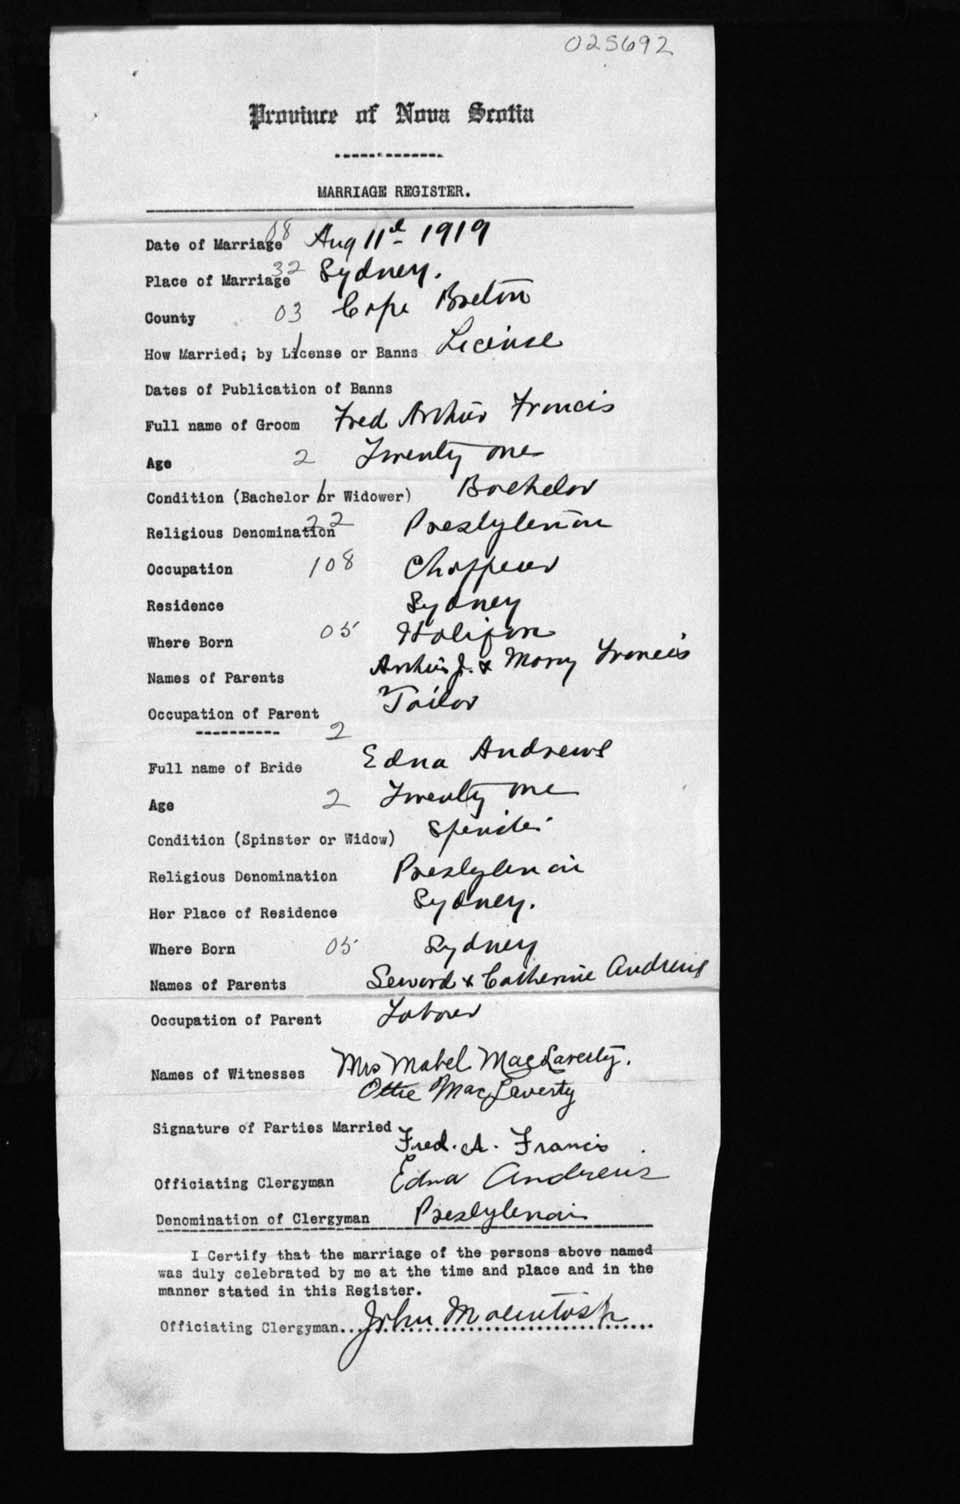 025692
Province of Nova Scotia
MARRIAGE REGISTER.
Date of Marriage 08 Aug 11th 1919
Place of Marriage 32 Sydney.
County 03 Cape Breton
How Married; by License or Banns 1 License
Dates of Publication of Banns
Full name of Groom Fred Arthur Francis
Age 2 Twenty one
Condition (Bachelor or Widower) 1 Bachelor
Religious Denomination 22 Presbyterian
Occupation 108 Chaffeur
Residence Sydney
Where Born 05 Halifax
Names of Parents Arthur J. & Mary Francis
Occupation of Parent Tailor
2
Full name of Bride Edna Andrews
Age 2 Twenty one
Condition (Spinster or Widow) Spinster
Religious Denomination Presbyterian
Her Place of Residence Sydney.
Where Born 05 Sydney
Names of Parents Seward & Catherine Andrews
Occupation of Parent Laborer
Names of Witnesses Mrs Mabel MacLaverty.
Ottie MacLaverty
Signature of Parties Married Fred. A. Francis
Officiating Clergyman Edna Andrews
Denomination of Clergyman Presbyterian
I Certify that the marriage of the persons above named
was duly celebrated by me at the time and place and in the
manner stated in this Register.
Officiating Clergyman..John Macintosh